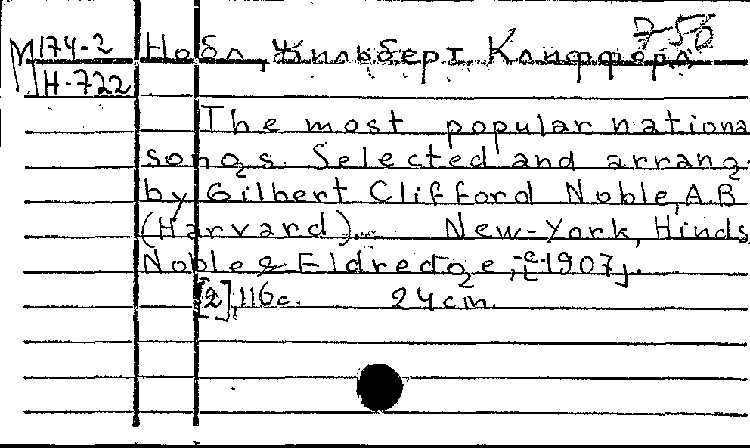 7-50
М174-2 Нобл, Жильберт Клиффорд
Н-722
The most popular nationa
songs. Selected and arrang.
by Gilbert Clifford Noble, A.B
(Harvard).. New-York, Hinds
Noble & Eldredge, [c 1907].
[2], 116c. 24cm.